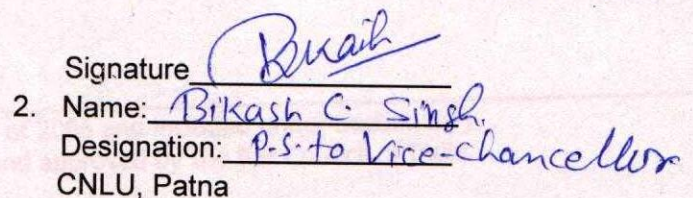 Signature Bikash
2. Name: Bikash C. Singh.
Designation: P.S. to Vice-Chancellor
CNLU, Patna